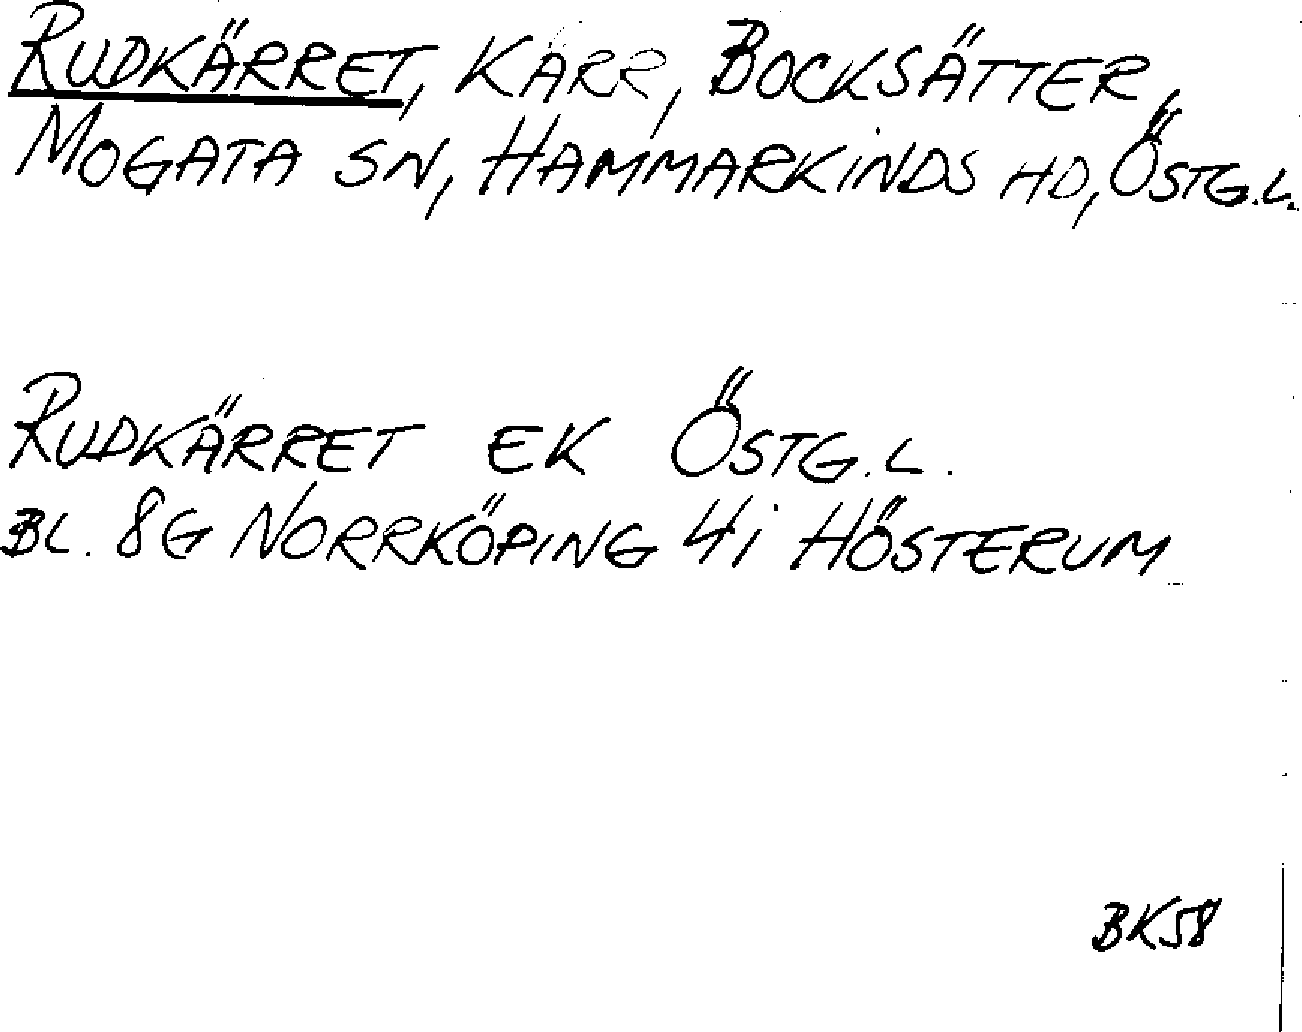 RUDKÄRRET, KÄRR, BOCKSÄTTER,
MOGATA SN, HAMMARKINDS HD, ÖSTG.L.
RUDKÄRRET EK ÖSTG.L.
BL. 8G NORRKÖPING 4i HÖSTERUM
BK58